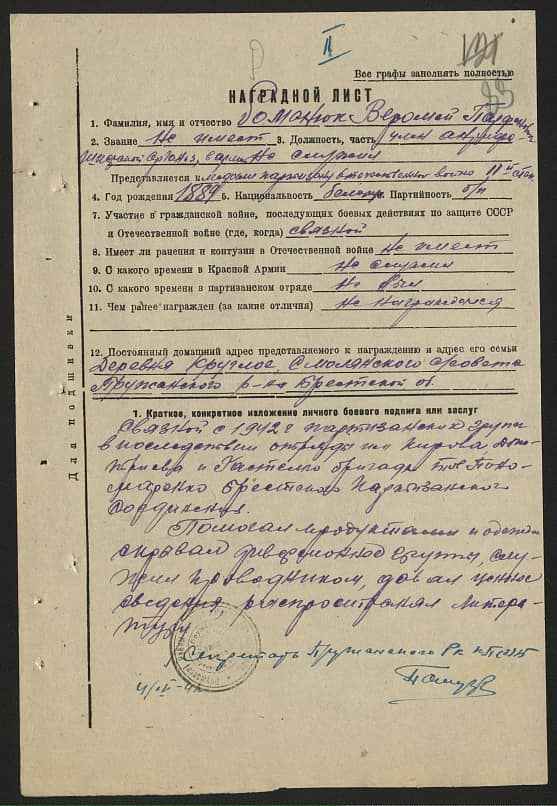 II
Все графы заполнять полностью
НАГРАДНОЙ ЛИСТ
1. Фамилия, имя и отчество Романюк
2. Звание Не имеет 3. Должность, часть член антифа-
в армии Не служил
Представляется к медали партизану отечественной войны II й степ.
4. Год рождения 1889 5. Национальность белорус Партийность б/п
7. Участие в гражданской войне, последующих боевых действиях по защите СССР
и Отечественной войне (где, когда) связной
8. Имеет ли ранения и контузии в Отечественной войне Не имеет
9. С какого времени в Красной Армии Не служил
10. С какого времени в партизанском отряде Не был
11. Чем ранее награжден (за какие отличия) Не награждался
12. Постоянный домашний адрес представляемого к награждению и адрес его семьи
Деревня Круглое, Смолянского с/совета
Пружанского р-на Брестской об.
1. Краткое, конкретное изложение личного боевого подвига или заслуг
Связной с 1942 г партизанских групп
в последствии отряды им Кирова
и Гастелло бригады Поно-
маренко Брестского Партизанского
соединения.
Помогал продуктами и одежд.
группы, слу-
жил проводником, давал ценные
сведения распространял литера-
туру
Секретарь Пружанского Рк КП(б)Б
Для подшивки